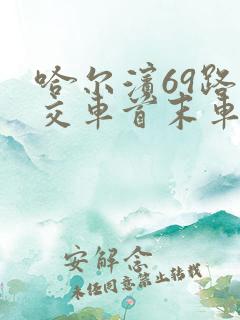 哈尔滨69路
交车首末车
安解念
未经同意禁止转载